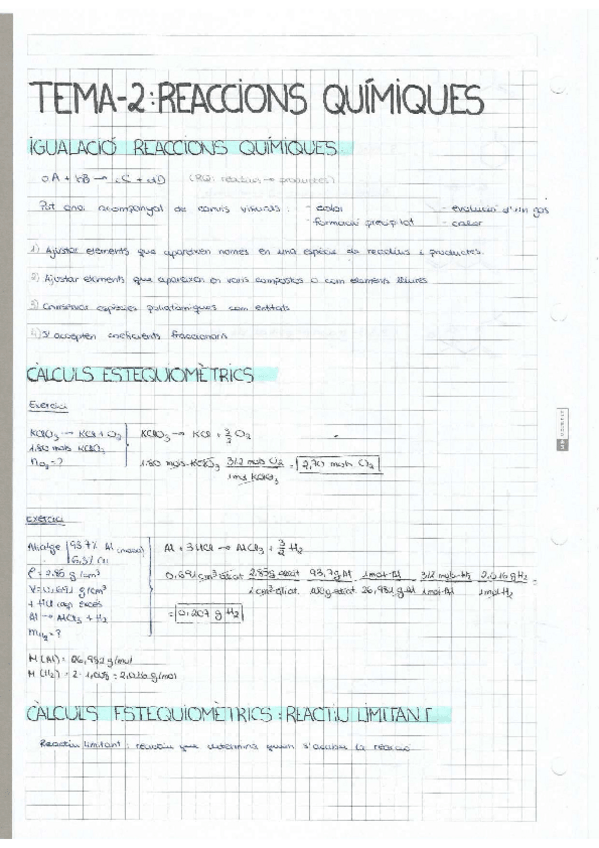 TEMA-2: REACCIONS QUÍMIQUES
IGUALACIÓ REACCIONS QUÍMIQUES
aA + bB → cC + dD (RQ: reactius → productes)
Pot anar acompanyat de canvis visuals: - color - evolució d'un gas
- formació precipitat - calor
1) Ajustar elements que apareixen nomes en una espècie de reactius i productes
2) Ajustar elements que apareixen en varis compostos o com elements lliures
3) espècies poliatòmiques com entitats
4) S'accepten coeficients fraccionaris
CÀLCULS ESTEQUIOMÈTRICS
Exercici
KClO₃ → KCl + O₂ KClO₃ → KCl + 3/2 O₂
1.80 mols KClO₃
n O₂ = ? 1.80 mols KClO₃ · 3/2 mols O₂ / 1 mol KClO₃ = 2,70 mols O₂
Exercici
Aliatge 93.7% Al (massa) Al + 3HCl → AlCl₃ + 3/2 H₂
6.3% Cu
ρ = 2.85 g/cm³ 0.691 cm³ aliat. 2.85 g aliat / 1 cm³ aliat. 93,7 g Al / 100 g aliat 1 mol Al / 26,982 g Al 3/2 mols H₂ / 1 mol Al 2,016 g H₂ / 1 mol H₂ =
V = 0.691 cm³
+ HCl en excés
Al → AlCl₃ + H₂ = 0,207 g H₂
m H₂ = ?
M (Al) = 26,982 g/mol
M (H₂) = 2 · 1,008 = 2,016 g/mol
CÀLCULS ESTEQUIOMÈTRICS: REACTIU LIMITANT
Reactiu limitant: reactiu que determina quan s'acaba la reacció